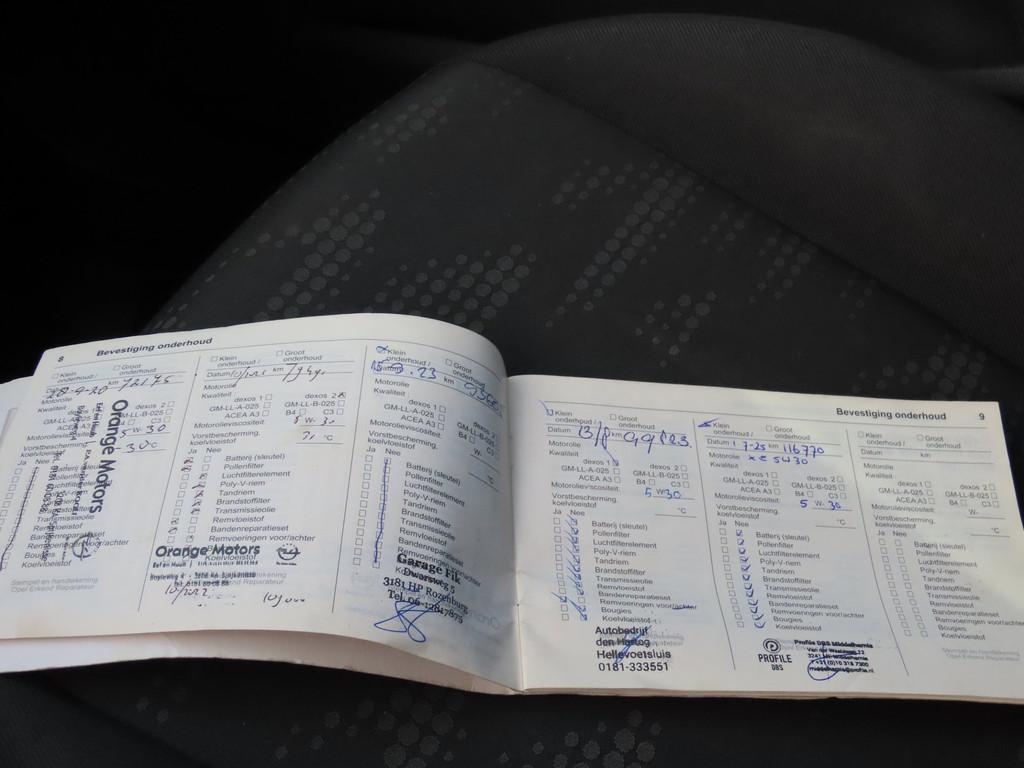 8 Bevestiging onderhoud
Klein onderhoud / Groot onderhoud
28-9-20 km 72175
Kwaliteit
dexos 1 dexos 2
GM-LL-A-025 GM-LL-B-025
ACEA A3 B4 C3
5 W-30
Vorstbescherming koelvloeistof
-30°C
Ja Nee
Batterij (sleutel)
Pollenfilter
Orange Motors
Klein onderhoud / Groot onderhoud
Datum km
Motorolie
Kwaliteit
dexos 1 dexos 2
GM-LL-A-025 GM-LL-B-025
ACEA A3 B4 C3
Motorolieviscositeit: W-30
Vorstbescherming, koelvloeistof °C
Ja Nee
Batterij (sleutel)
Pollenfilter
Luchtfilterelement
Poly-V-riem
Tandriem
Brandstoffilter
Transmissieolie
Remvloeistof
Bandenreparatieset
Remvoeringen voor/achter
Koelvloeistof
Orange Motors
Klein onderhoud / Groot onderhoud
Datum 23 km
Motorolie
Kwaliteit
dexos 1 dexos 2
GM-LL-A-025 GM-LL-B-025
ACEA A3 B4 C3
Motorolieviscositeit: W-
Vorstbescherming, koelvloeistof °C
Ja Nee
Batterij (sleutel)
Pollenfilter
Luchtfilterelement
Poly-V-riem
Tandriem
Brandstoffilter
Transmissieolie
Remvloeistof
Bandenreparatieset
Remvoeringen voor/achter
Garage Fik
Dwarsweg 5
3181 HP Rozenburg
Tel. 06-12847875
Bevestiging onderhoud 9
Klein onderhoud / Groot onderhoud
Datum 13/8 km
Motorolie
Kwaliteit
dexos 1 dexos 2
GM-LL-A-025 GM-LL-B-025
ACEA A3 B4 C3
Motorolieviscositeit: 5 W30
Vorstbescherming, koelvloeistof °C
Ja Nee
Batterij (sleutel)
Pollenfilter
Luchtfilterelement
Poly-V-riem
Tandriem
Brandstoffilter
Transmissieolie
Remvloeistof
Bandenreparatieset
Remvoeringen voor/achter
Bougies
Koelvloeistof
Autobedrijf
den Hartog
Hellevoetsluis
0181-333551
Klein onderhoud / Groot onderhoud
Datum 1-7-25 km 116770
Motorolie 5W30
Kwaliteit
dexos 1 dexos 2
GM-LL-A-025 GM-LL-B-025
ACEA A3 B4 C3
Motorolieviscositeit: 5 W-30
Vorstbescherming, koelvloeistof °C
Ja Nee
Batterij (sleutel)
Pollenfilter
Luchtfilterelement
Poly-V-riem
Tandriem
Brandstoffilter
Transmissieolie
Remvloeistof
Bandenreparatieset
Remvoeringen voor/achter
Bougies
Koelvloeistof
PROFILE
GBS
Profile GBS Middelharnis
Klein onderhoud / Groot onderhoud
Datum km
Motorolie
Kwaliteit
dexos 1 dexos 2
GM-LL-A-025 GM-LL-B-025
ACEA A3 B4 C3
Motorolieviscositeit: W-
Vorstbescherming, koelvloeistof °C
Ja Nee
Batterij (sleutel)
Pollenfilter
Luchtfilterelement
Poly-V-riem
Tandriem
Brandstoffilter
Transmissieolie
Remvloeistof
Bandenreparatieset
Remvoeringen voor/achter
Bougies
Koelvloeistof
Stempel en handtekening
Opel Erkend Reparateur